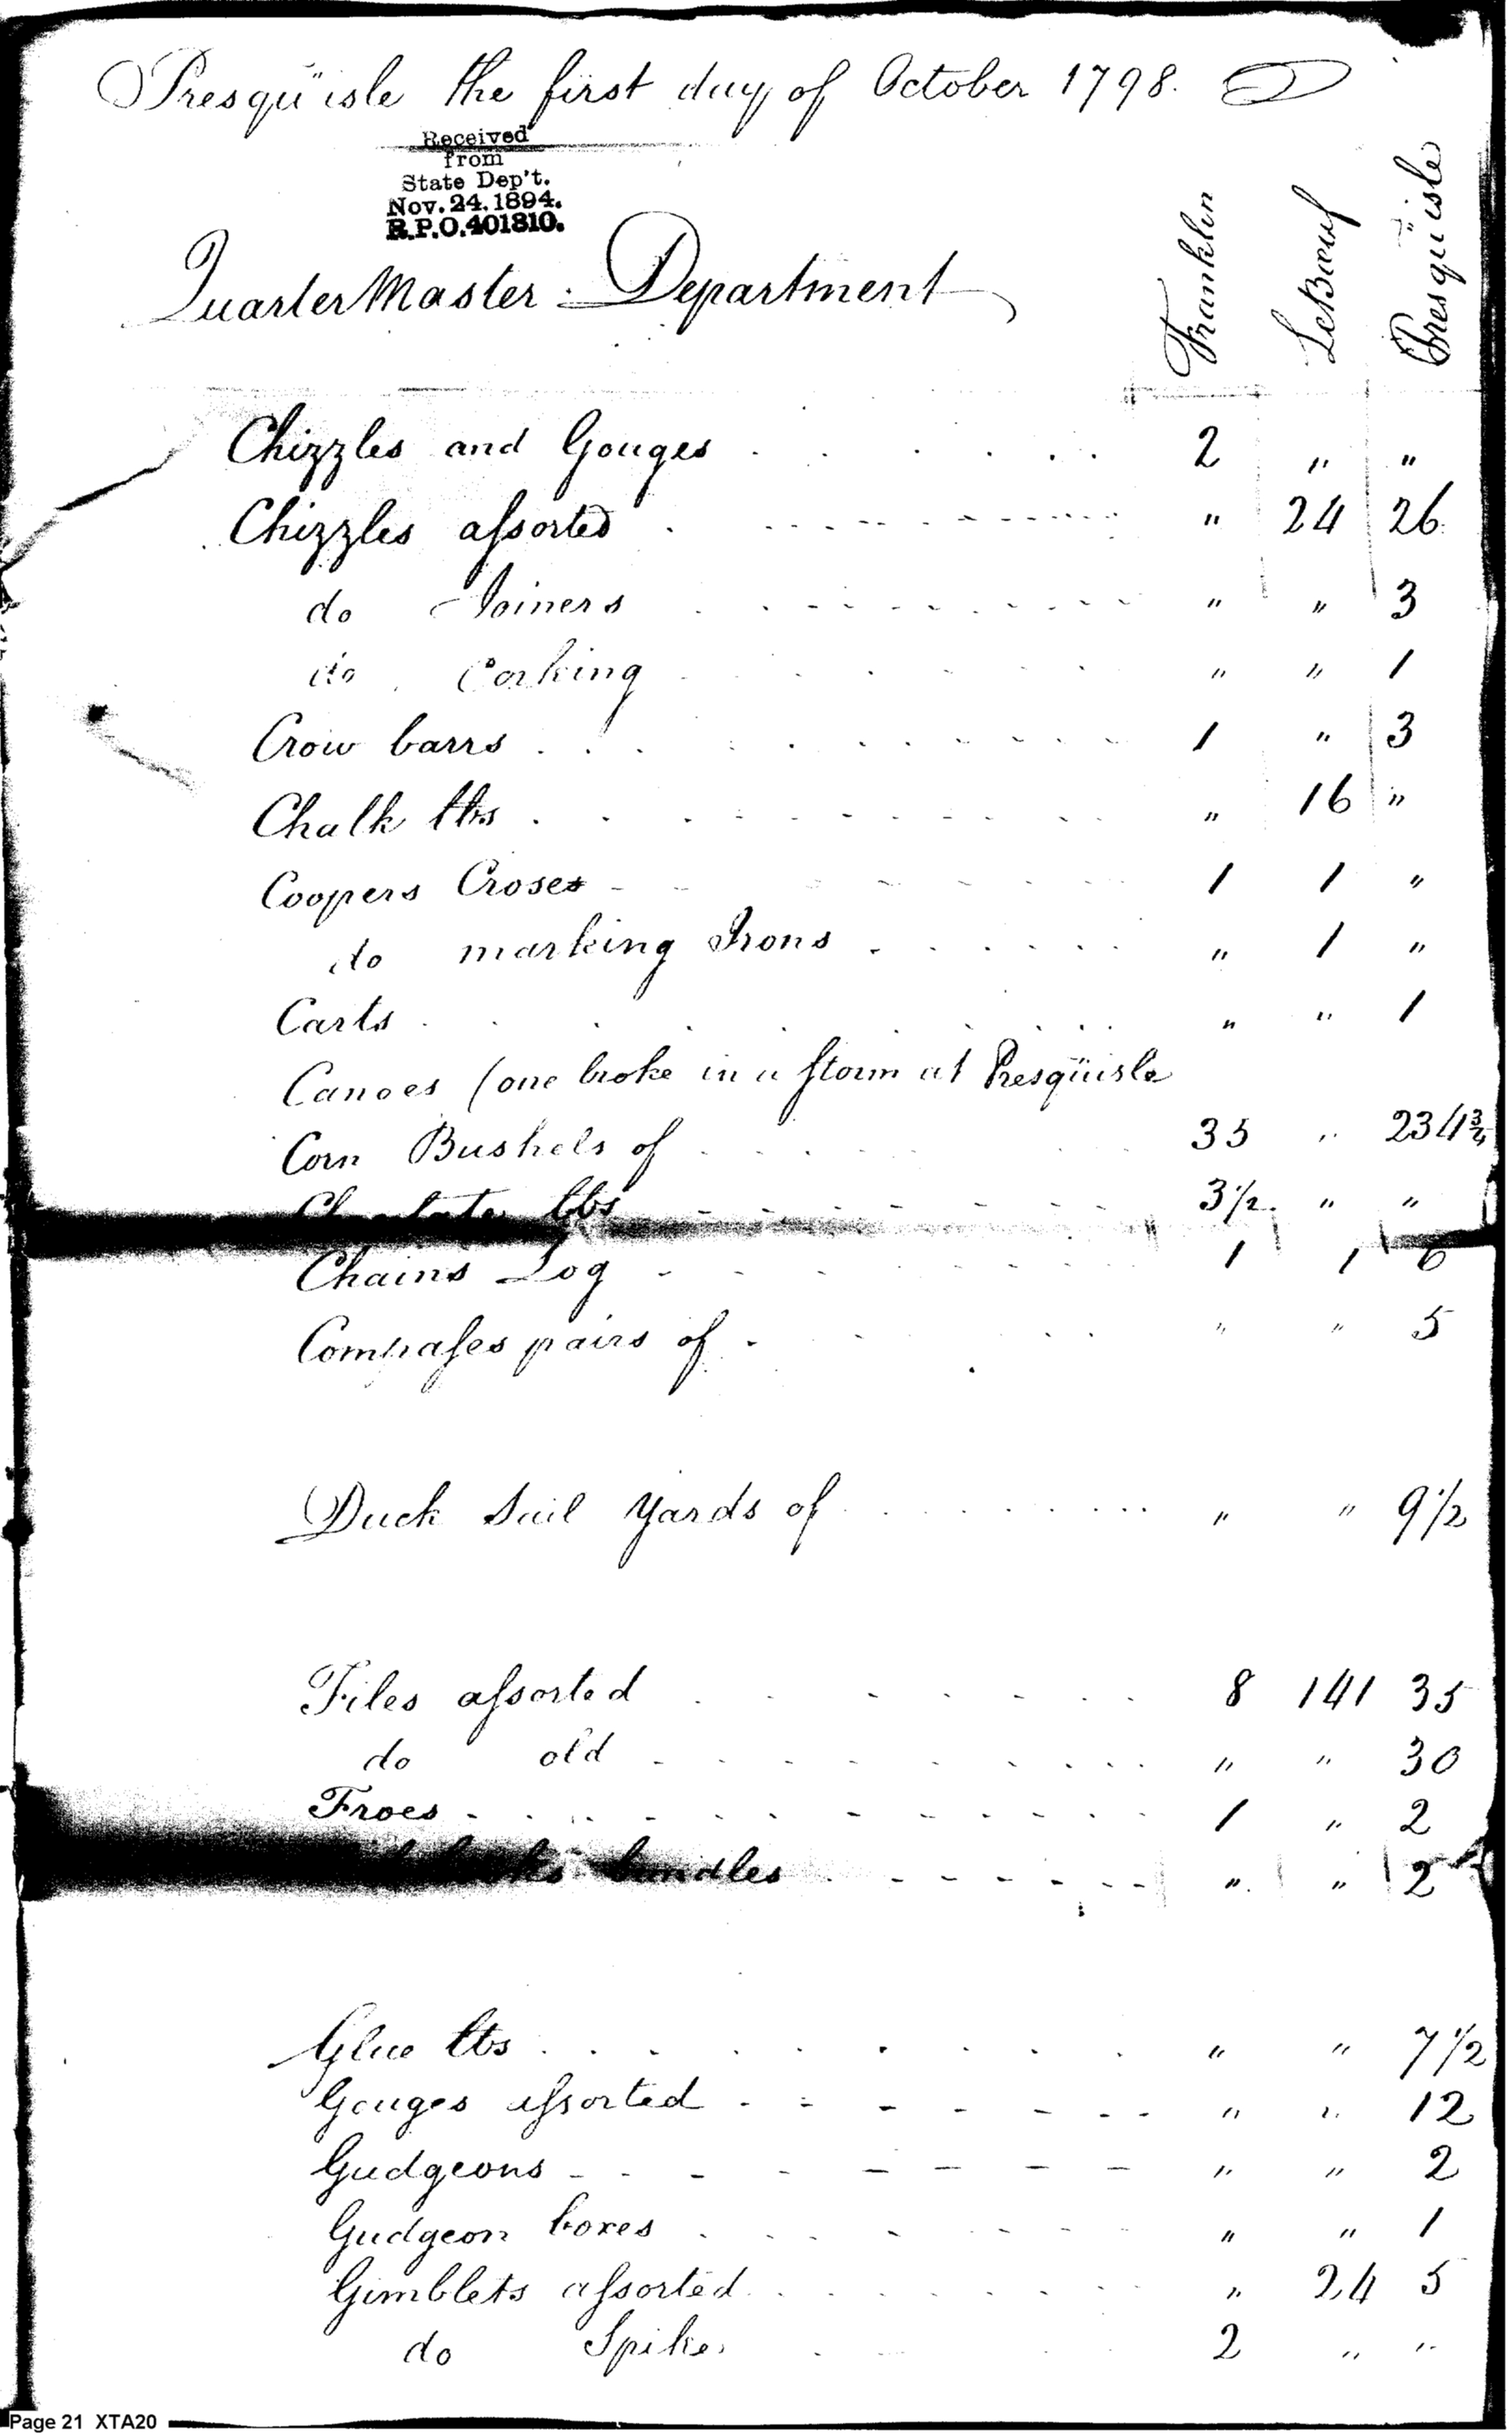 Presqu'isle the first day of October 1798.
Received
from
State Dep't.
Nov. 24. 1894.
R.P.O. 401810.
Quarter Master Department
Franklin LeBœuf Presqu'isle
Chizzles and Gouges 2 " "
Chizzles assorted " 24 26
do Joiners " " 3
do Corking " " 1
Crow barrs 1 " 3
Chalk lbs " 16 "
Coopers Croses 1 1 "
do marking Irons " 1 "
Carts " " 1
Canoes (one broke in a storm at Presqüisle
Corn Bushels of 35 " 234 3/4
lbs 3 1/2 " "
Chains Log 1 1 6
Compases pairs of " " 5
Duck Sail Yards of " " 9 1/2
Files assorted 8 141 35
do old " " 30
Froes 1 " 2
bundles " " 2
Glue lbs " " 7 1/2
Gouges assorted " " 12
Gudgeons " " 2
Gudgeon boxes " " 1
Gimblets assorted " 24 5
do Spike 2 " "
Page 21 XTA20